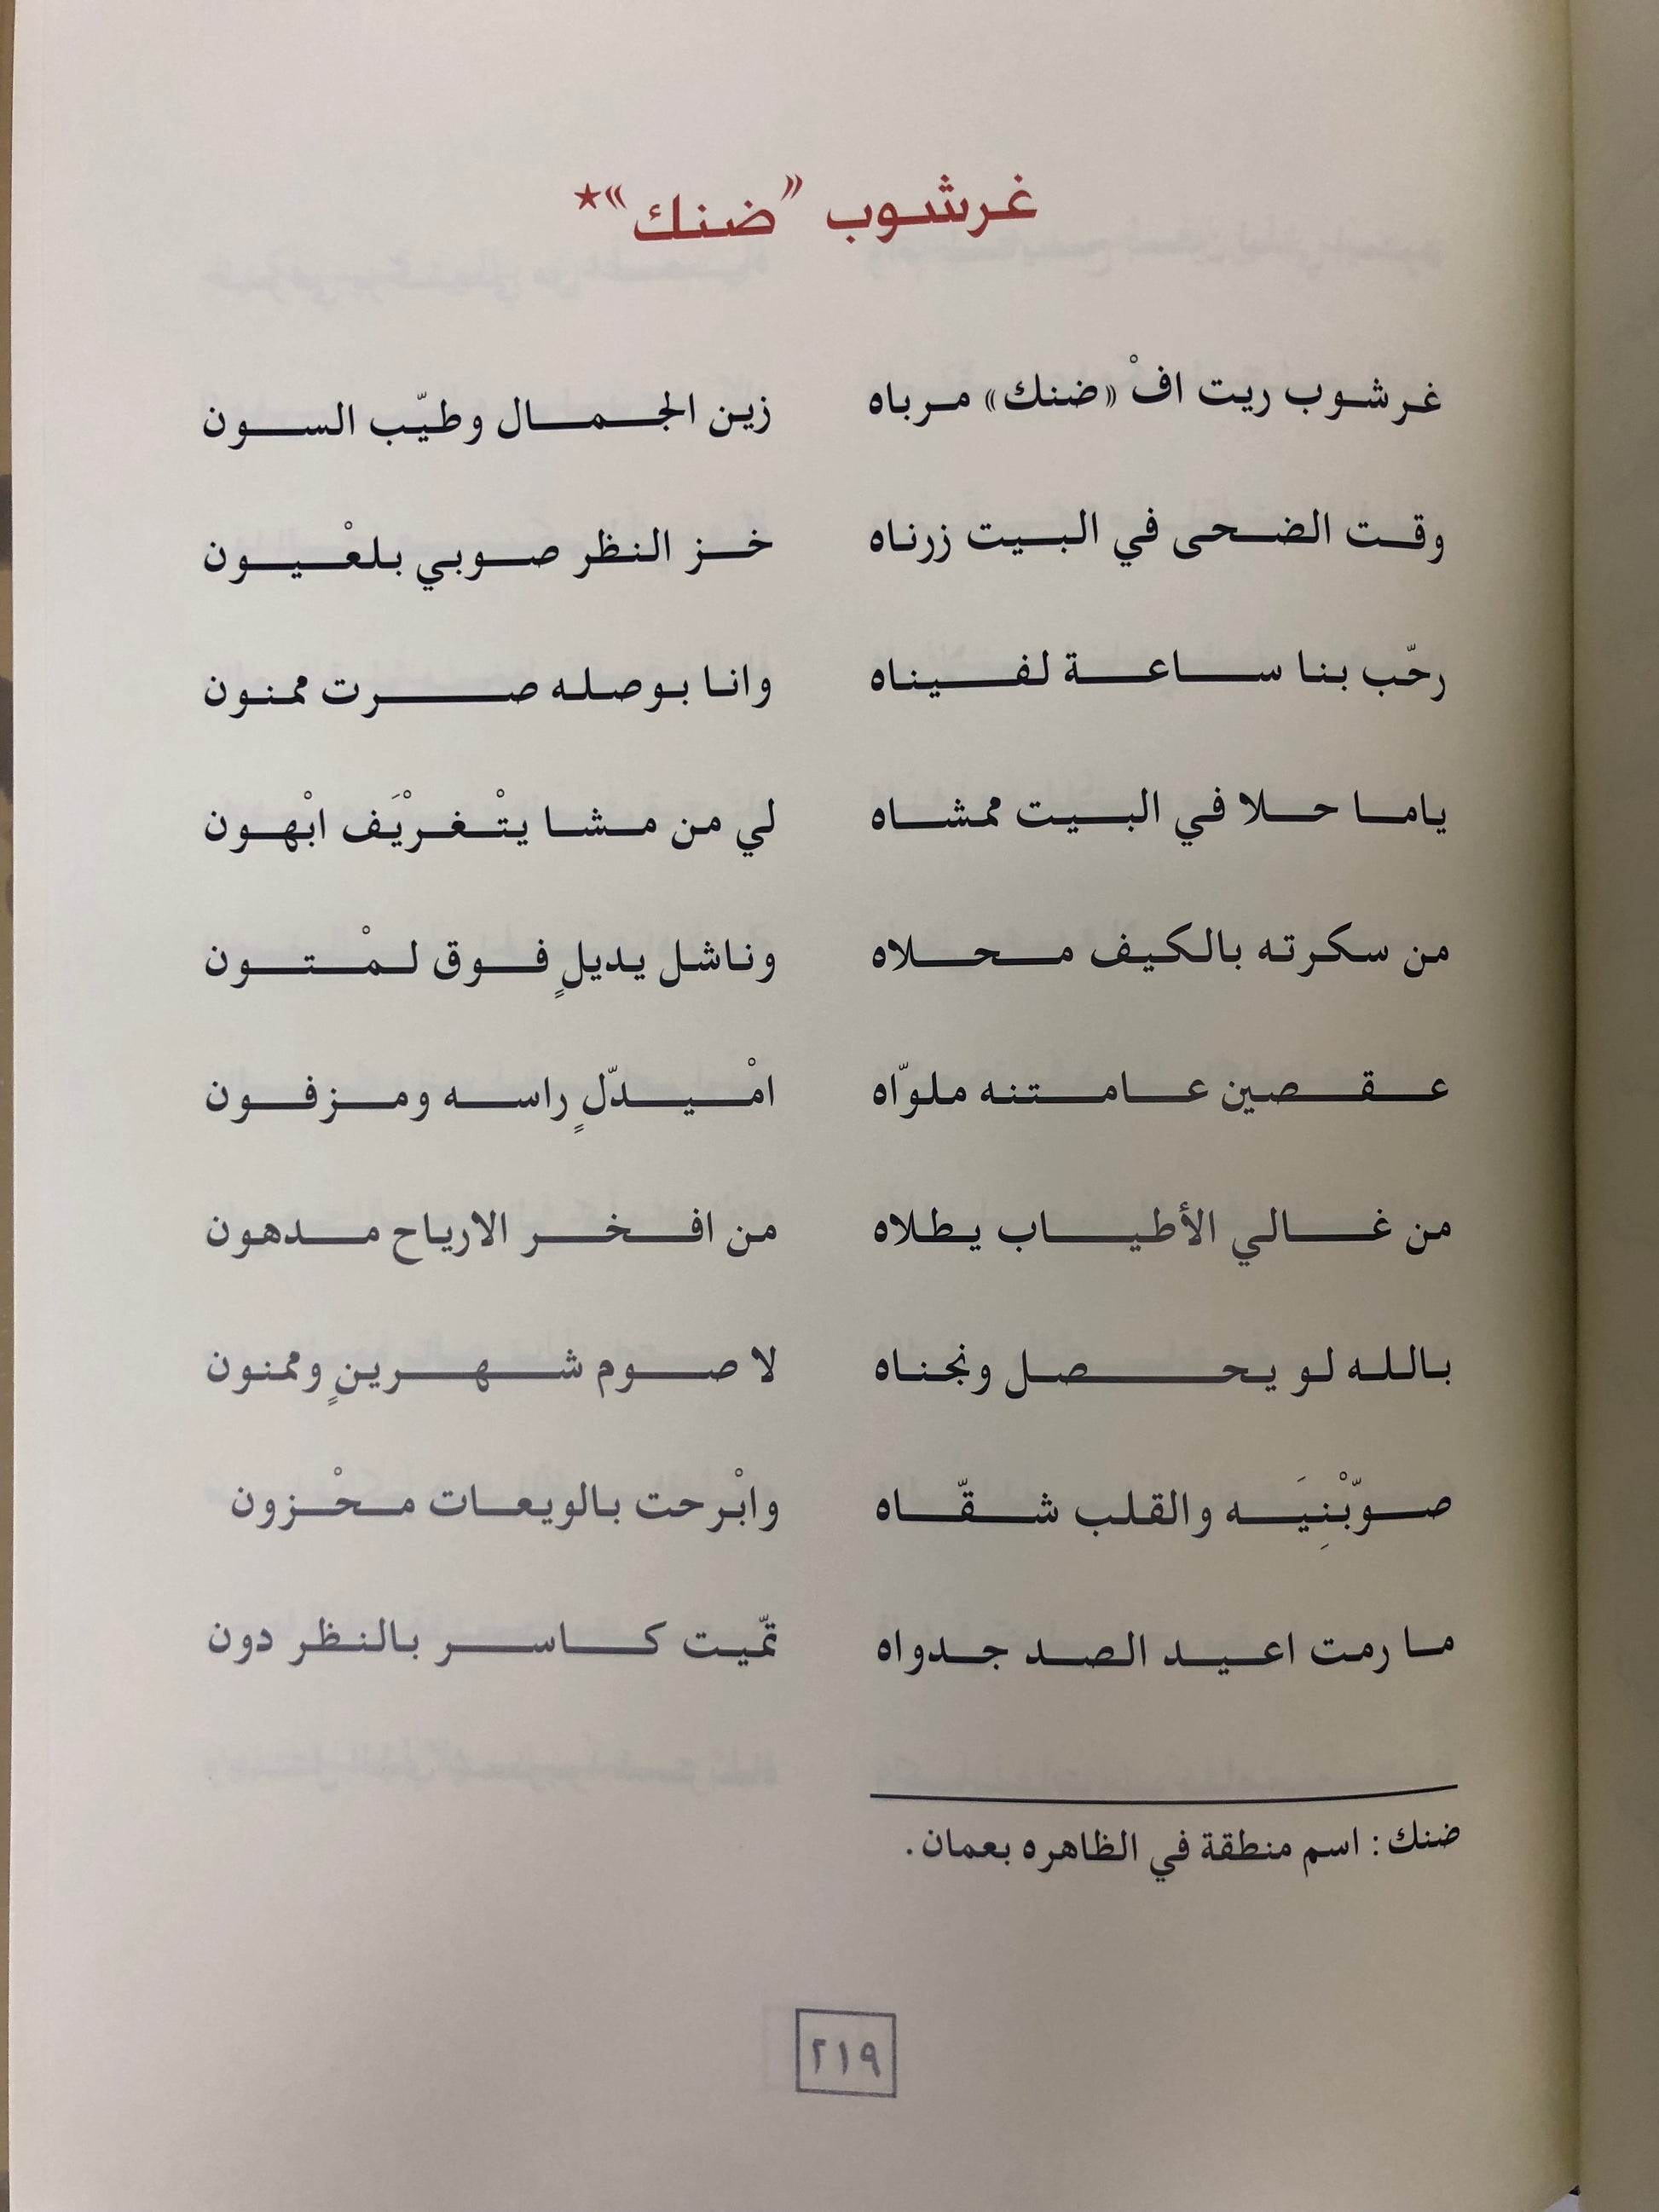 غرشوب "ضنك"*
غرشوب ريت افْ «ضنك» مرباه زين الجمال وطيّب السون
وقت الضحى في البيت زرناه خز النظر صوبي بلعْيون
رحّب بنا ساعة لفيناه وانا بوصله صرت ممنون
ياما حلا في البيت ممشاه لي من مشا يتْغريَْف ابْهون
من سكرته بالكيف محلاه وناشل يديلٍ فوق لمْتون
عقصين عامتنه ملوّاه امْيدّلٍ راسه ومزفون
من غالي الأطياب يطلاه من افخر الارياح مدهون
بالله لو يحصل ونجناه لا صوم شهرينٍ وممنون
صوّبْنِيَه والقلب شقّاه وابْرحت بالويعات محْزون
ما رمت اعيد الصد جدواه تمّيت كاسر بالنظر دون
ضنك: اسم منطقة في الظاهره بعمان.
٢١٩